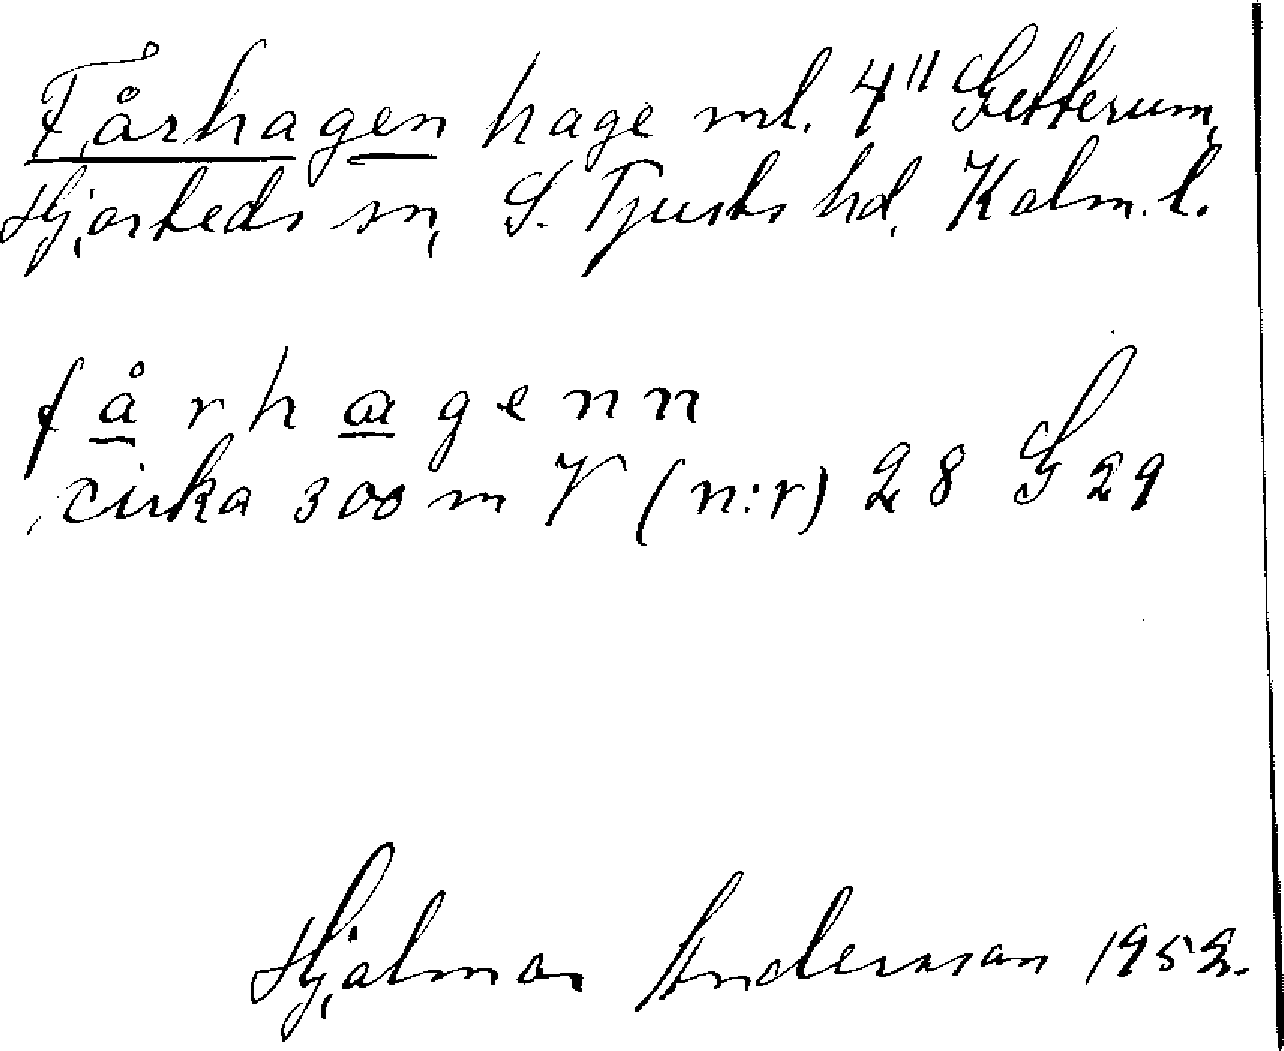 Fårhagen hage ml. 4" Getterum,
Hjorteds sn, S. Tjusts hd, Kalm. l.
fårhagenn
cirka 300 m V (n:r) 28 G 29
Hjalmar Andersson 1952.